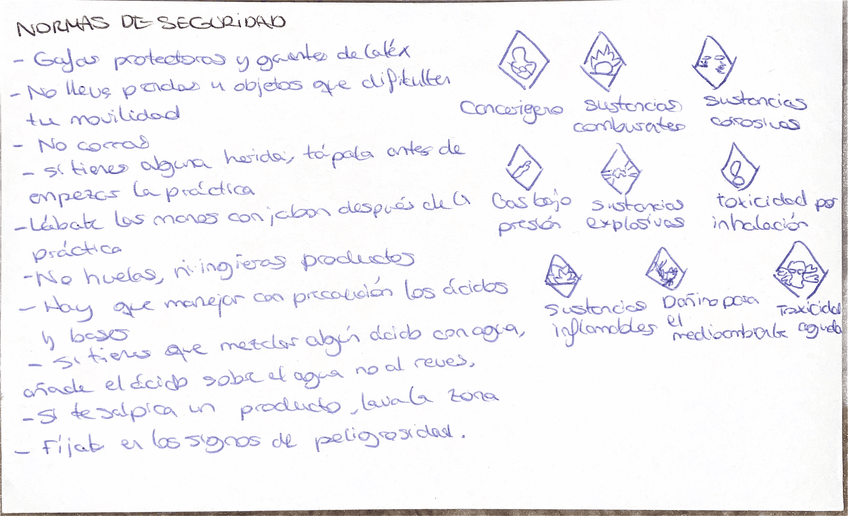 NORMAS DE SEGURIDAD
- Gafas protectoras y guantes de latéx
- No lleves prendas u objetos que dificulten
tu movilidad
- No corras
- si tienes alguna herida, tápala antes de
empezar la práctica
- Lábate las manos con jabon después de la
práctica
- No huelas, ni ingieras productos
- Hay que manejar con precaución los ácidos
y bases
- Si tienes que mezclar algún ácido con agua,
añade el ácido sobre el agua no al reves.
- Si te salpica un producto, lava la zona
- Fíjate en los signos de peligrosidad.
Cancerígeno
sustancias
comburentes
sustancias
corosivas
Gas bajo
presión
sustancias
explosivas
toxicidad por
inhalación
sustancias
inflamables
Dañino para
el
medioambiente
Toxicidad
aguda